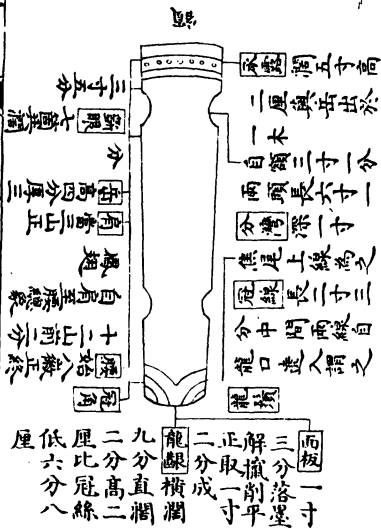 額
承露 濶五寸高
二厘與岳出於
一木
自額三寸一分
兩頭長六寸一
分灣 深一寸
焦尾上線為之
冠線 長二寸三
分中間兩線自
龍口进入謂之
龍鬚
三寸五分
七箇共濶
分
岳 高四分厚三
肩 當三山正
鳳翅
自肩至腰總數
十二山前一分
腰始 八徽正終
冠角
面板 一寸
三分落墨
解撇削平
正取一寸
二分成
龍齦 橫濶
九分直濶
二分高二
厘比冠絲
低六分八
厘